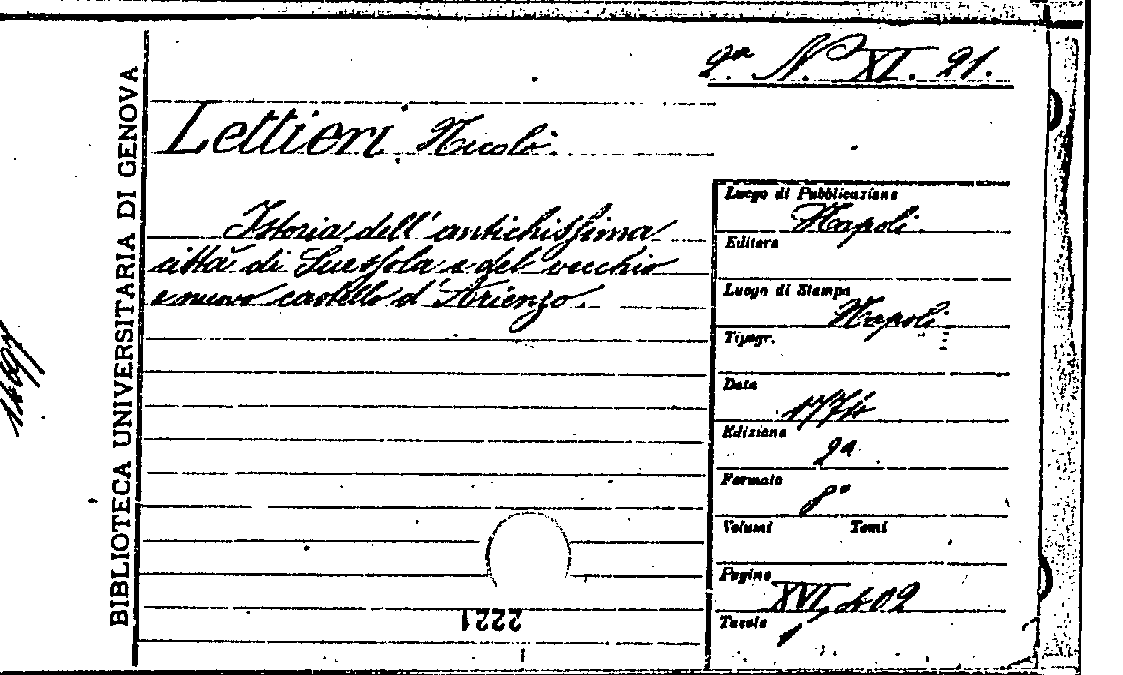 2ª N. XI. 21.
BIBLIOTECA UNIVERSITARIA DI GENOVA
Lettieri, Nicolò.
Istoria dell' antichissima
città di Suessola e del vecchio
e nuovo castello d'Arienzo.
Luogo di Pubblicazione
Napoli.
Editore
Luogo di Stampa
Napoli
Tipogr.
Data
Edizione
2ª
Formato
8°
Volumi Tomi
Pagine
XVI, 402
Tavole
1
2221